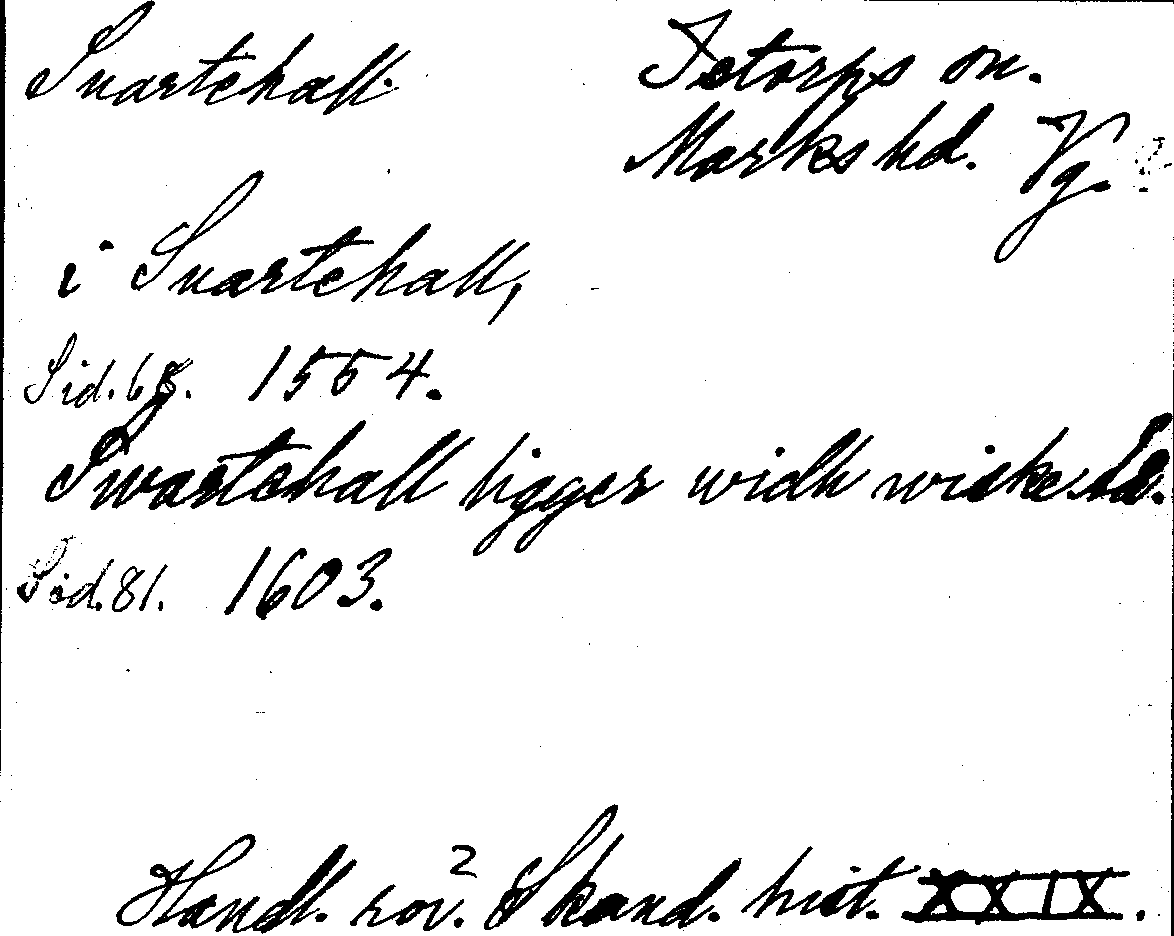 Svartehall.
Istorps sn.
Marks hd. Vg.
i Svartehall,
Sid. 68. 1554.
Swartehall ligger widh wiske
Sid. 81. 1603.
Handl. rör. Skand. hist. XXIX.